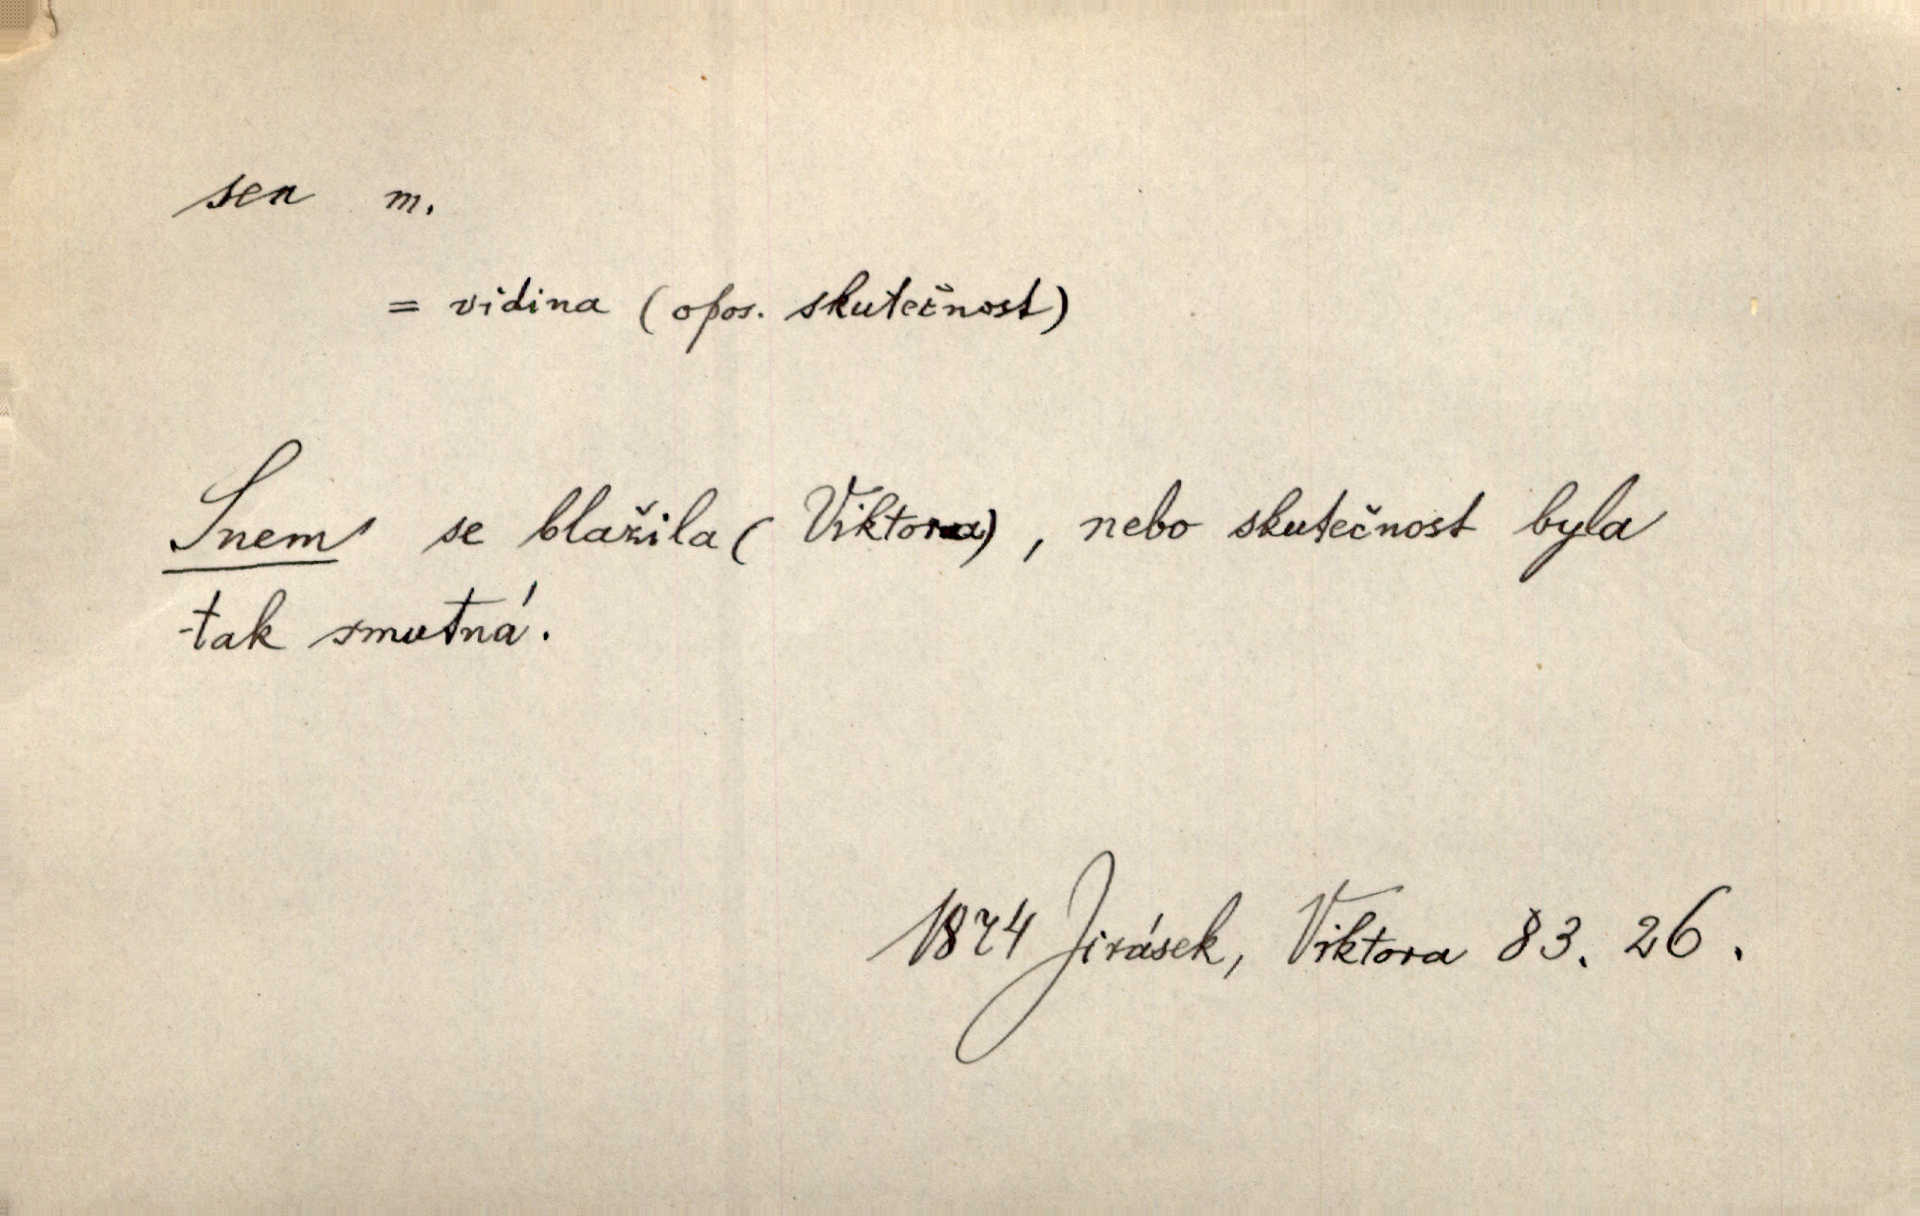 sen m.
= vidina (opos. skutečnost)
Snem se blažila (Viktora), nebo skutečnost byla
tak smutná.
1874 Jirásek, Viktora 83. 26.